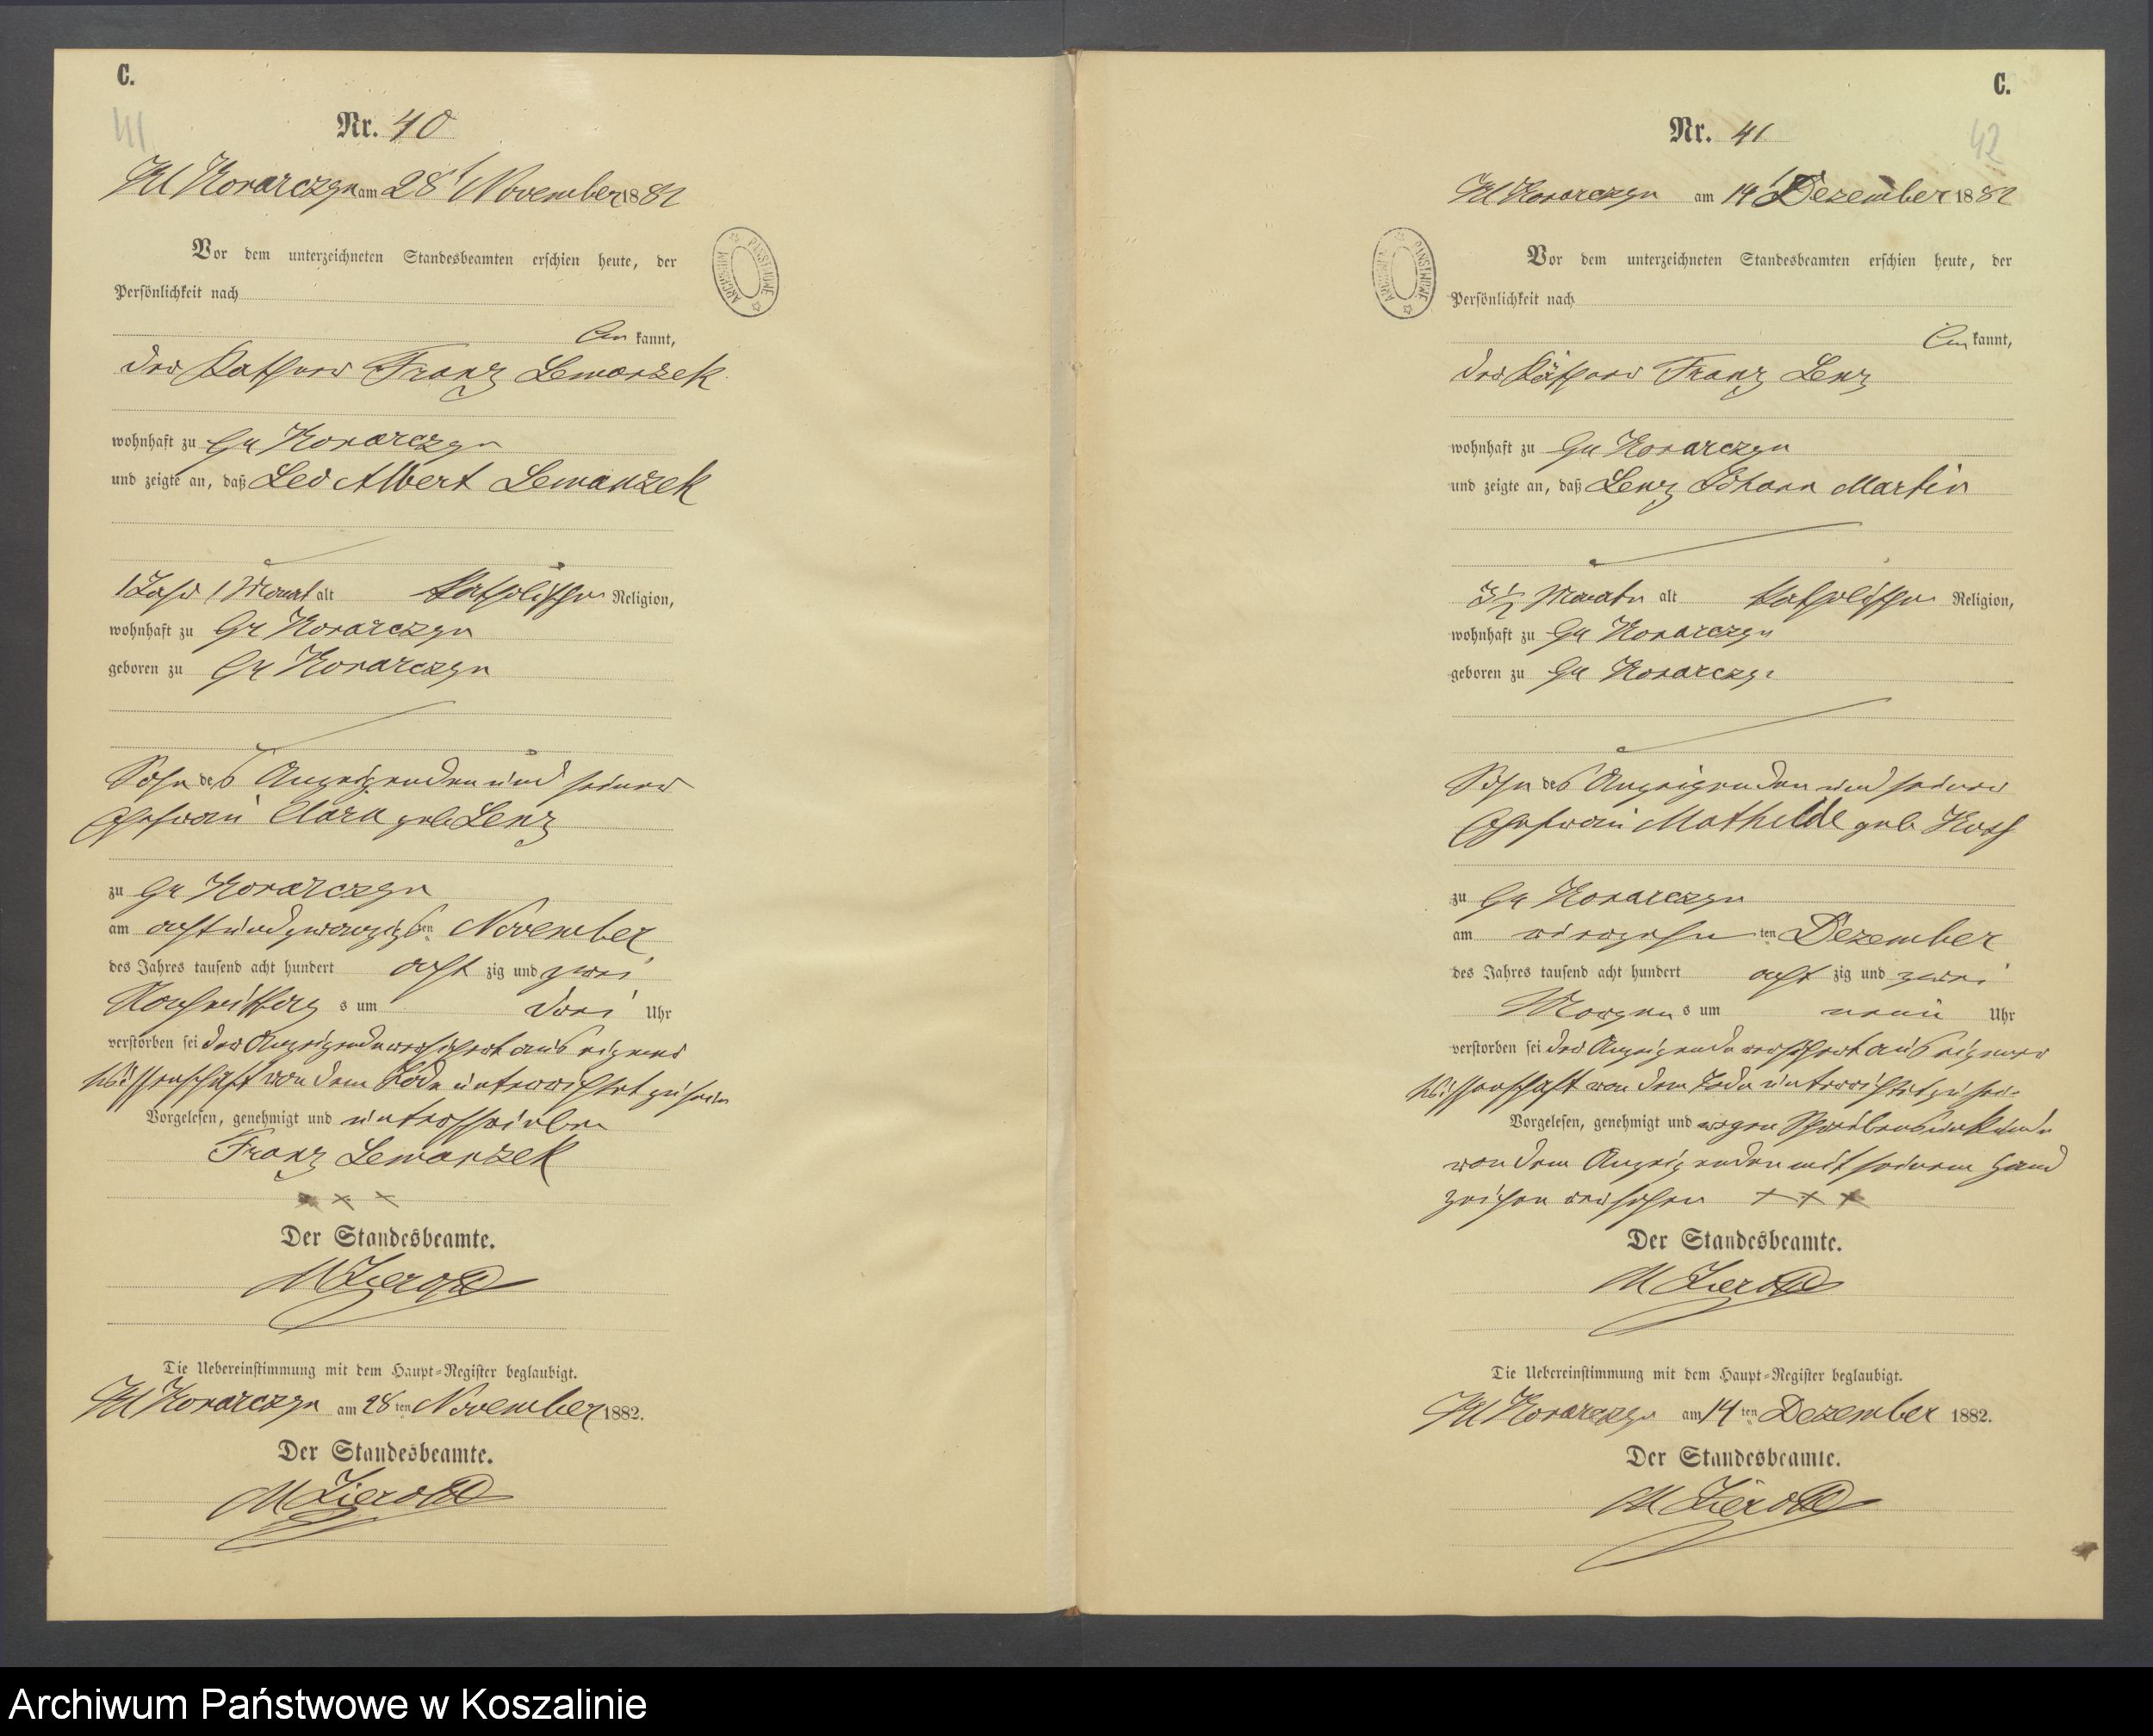 C.
41
Nr. 40
Kl Konarczyn am 28t November 1882
Vor dem unterzeichneten Standesbeamten erschien heute, der
Persönlichkeit nach
kannt,
der Käthner Franz Lemanzek
wohnhaft zu Gr Konarczyn
und zeigte an, daß Leo Albert Lemanzek
1 Jahr 1 Monat alt katholischer Religion,
wohnhaft zu Gr Konarczyn
geboren zu Gr Konarczyn
Sohn des Anzeigenden und seiner
Ehefrau Clara geb Lenz
zu Gr Konarczyn
am achtundzwanzigsten November
des Jahres tausend acht hundert acht zig und zwei
Nachmittags um drei Uhr
verstorben sei der Anzeigende versichert aus eigener
Wissenschaft von dem Tode unterrichtet zu sein
Vorgelesen, genehmigt und unterschrieben
Franz Lemanzek
× × ×
Der Standesbeamte.
Die Uebereinstimmung mit dem Haupt=Register beglaubigt.
Kl Konarczyn am 28ten November 1882.
Der Standesbeamte.
ARCHIWUM PAŃSTWOWE
C.
42
Nr. 41
Kl Konarczyn am 14t Dezember 1882
Vor dem unterzeichneten Standesbeamten erschien heute, der
Persönlichkeit nach
kannt,
der Käthner Franz Lenz
wohnhaft zu Gr Konarczyn
und zeigte an, daß Lenz Johann Martin
3½ Monate alt katholischer Religion,
wohnhaft zu Gr Konarczyn
geboren zu Gr Konarczyn
Sohn des Anzeigenden und seiner
Ehefrau Mathilde geb
zu Gr Konarczyn
am vierzehnten Dezember
des Jahres tausend acht hundert acht zig und zwei
Morgens um neun Uhr
verstorben sei der Anzeigende versichert aus eigener
Wissenschaft von dem Tode unterrichtet zu sein
Vorgelesen, genehmigt und wegen Schreibensunkunde
von dem Anzeigenden mit seinem Hand
zeichen versehen + + +
Der Standesbeamte.
Die Uebereinstimmung mit dem Haupt=Register beglaubigt.
Kl Konarczyn am 14ten Dezember 1882.
Der Standesbeamte.
ARCHIWUM PAŃSTWOWE
Archiwum Państwowe w Koszalinie